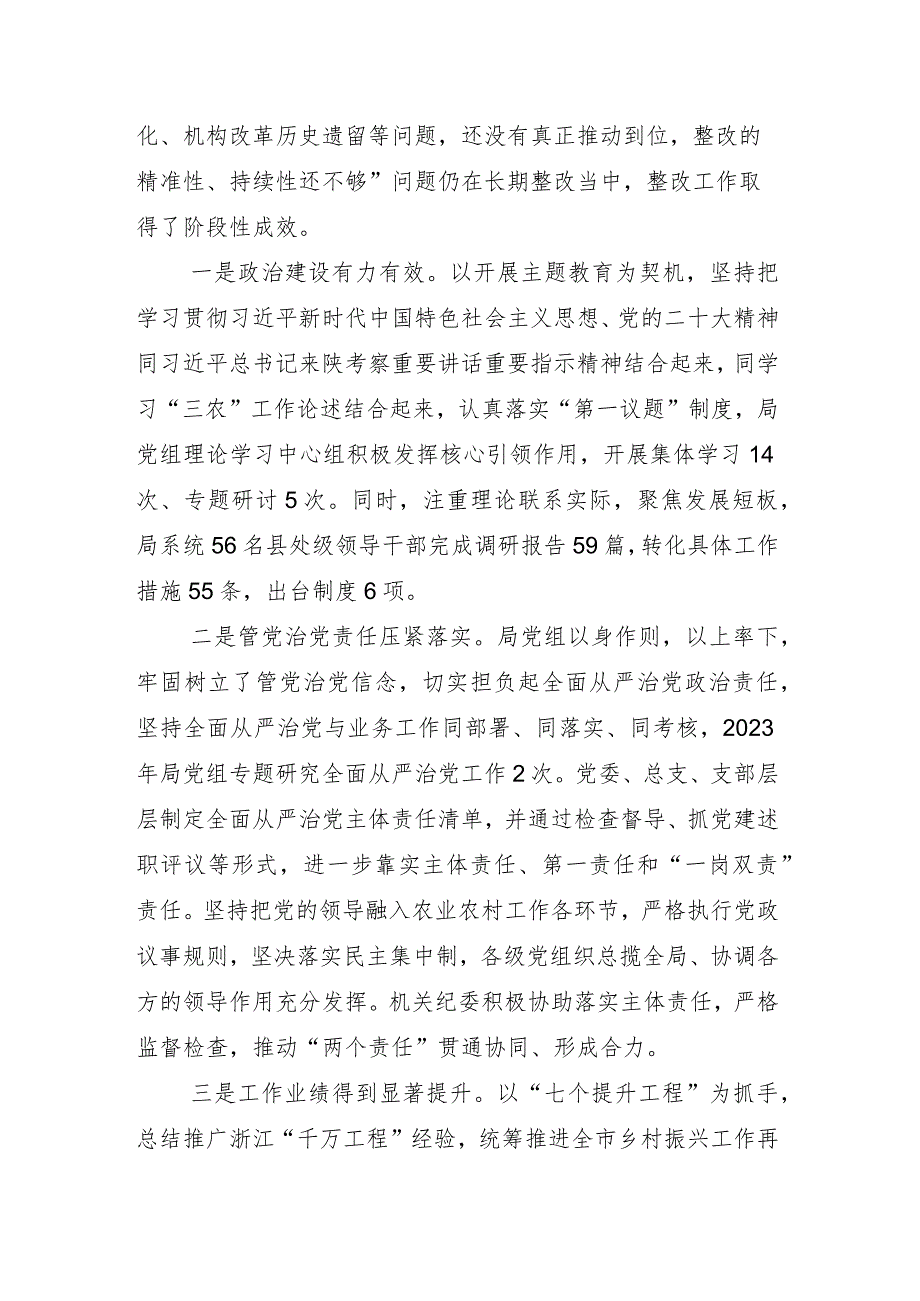 化、机构改革历史遗留等问题，还没有真正推动到位，整改的
精准性、持续性还不够”问题仍在长期整改当中，整改工作取
得了阶段性成效。
一是政治建设有力有效。以开展主题教育为契机，坚持把
学习贯彻习近平新时代中国特色社会主义思想、党的二十大精神
同习近平总书记来陕考察重要讲话重要指示精神结合起来，同学
习“三农”工作论述结合起来，认真落实“第一议题”制度，局
党组理论学习中心组积极发挥核心引领作用，开展集体学习 14
次、专题研讨 5 次。同时，注重理论联系实际，聚焦发展短板，
局系统 56 名县处级领导干部完成调研报告 59 篇，转化具体工作
措施 55 条，出台制度 6 项。
二是管党治党责任压紧落实。局党组以身作则，以上率下，
牢固树立了管党治党信念，切实担负起全面从严治党政治责任，
坚持全面从严治党与业务工作同部署、同落实、同考核，2023
年局党组专题研究全面从严治党工作 2 次。党委、总支、支部层
层制定全面从严治党主体责任清单，并通过检查督导、抓党建述
职评议等形式，进一步靠实主体责任、第一责任和“一岗双责”
责任。坚持把党的领导融入农业农村工作各环节，严格执行党政
议事规则，坚决落实民主集中制，各级党组织总揽全局、协调各
方的领导作用充分发挥。机关纪委积极协助落实主体责任，严格
监督检查，推动“两个责任”贯通协同、形成合力。
三是工作业绩得到显著提升。以“七个提升工程”为抓手，
总结推广浙江“千万工程”经验，统筹推进全市乡村振兴工作再